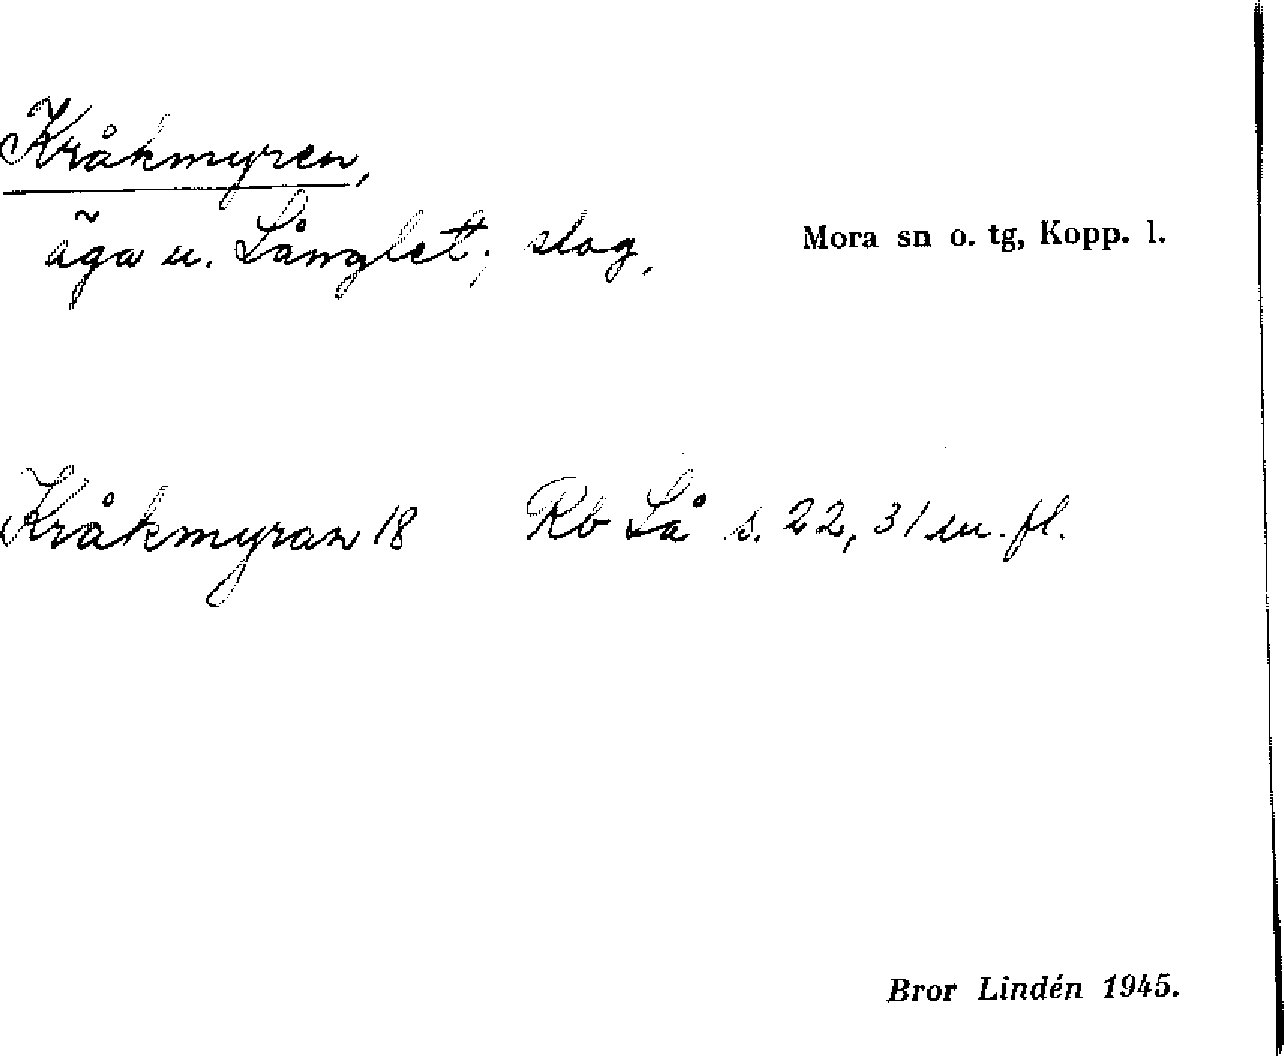 Kråkmyren,
äga u. Långlet; slog,
Mora sn o. tg, Kopp. l.
Kråkmyran 18 Rb Lå s. 22, 31 m. fl.
Bror Lindén 1945.